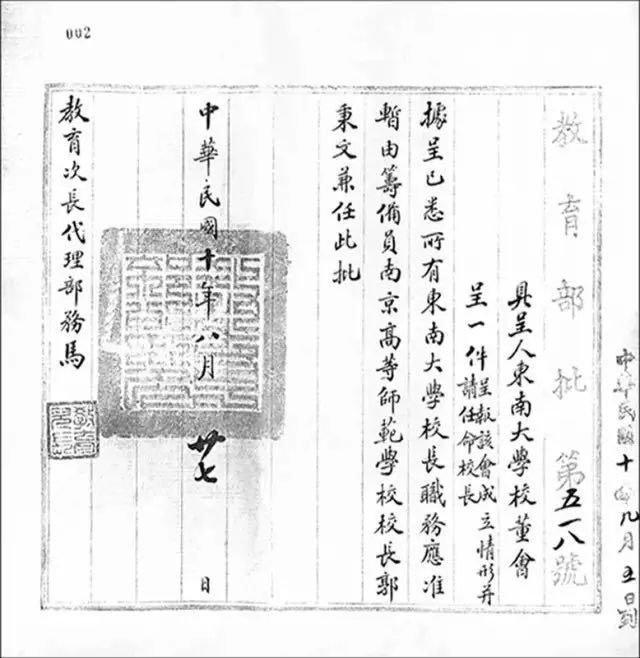 002
教育部批 第五一八號
具呈人東南大學校董會
呈一件 呈報該會成立情形并
請任命校長
據呈已悉所有東南大學校長職務應准
暫由籌備員南京高等師範學校校長郭
秉文兼任此批
中華民國十年八月廿七日
教育次長代理部務馬
中華民國十年九月五日到